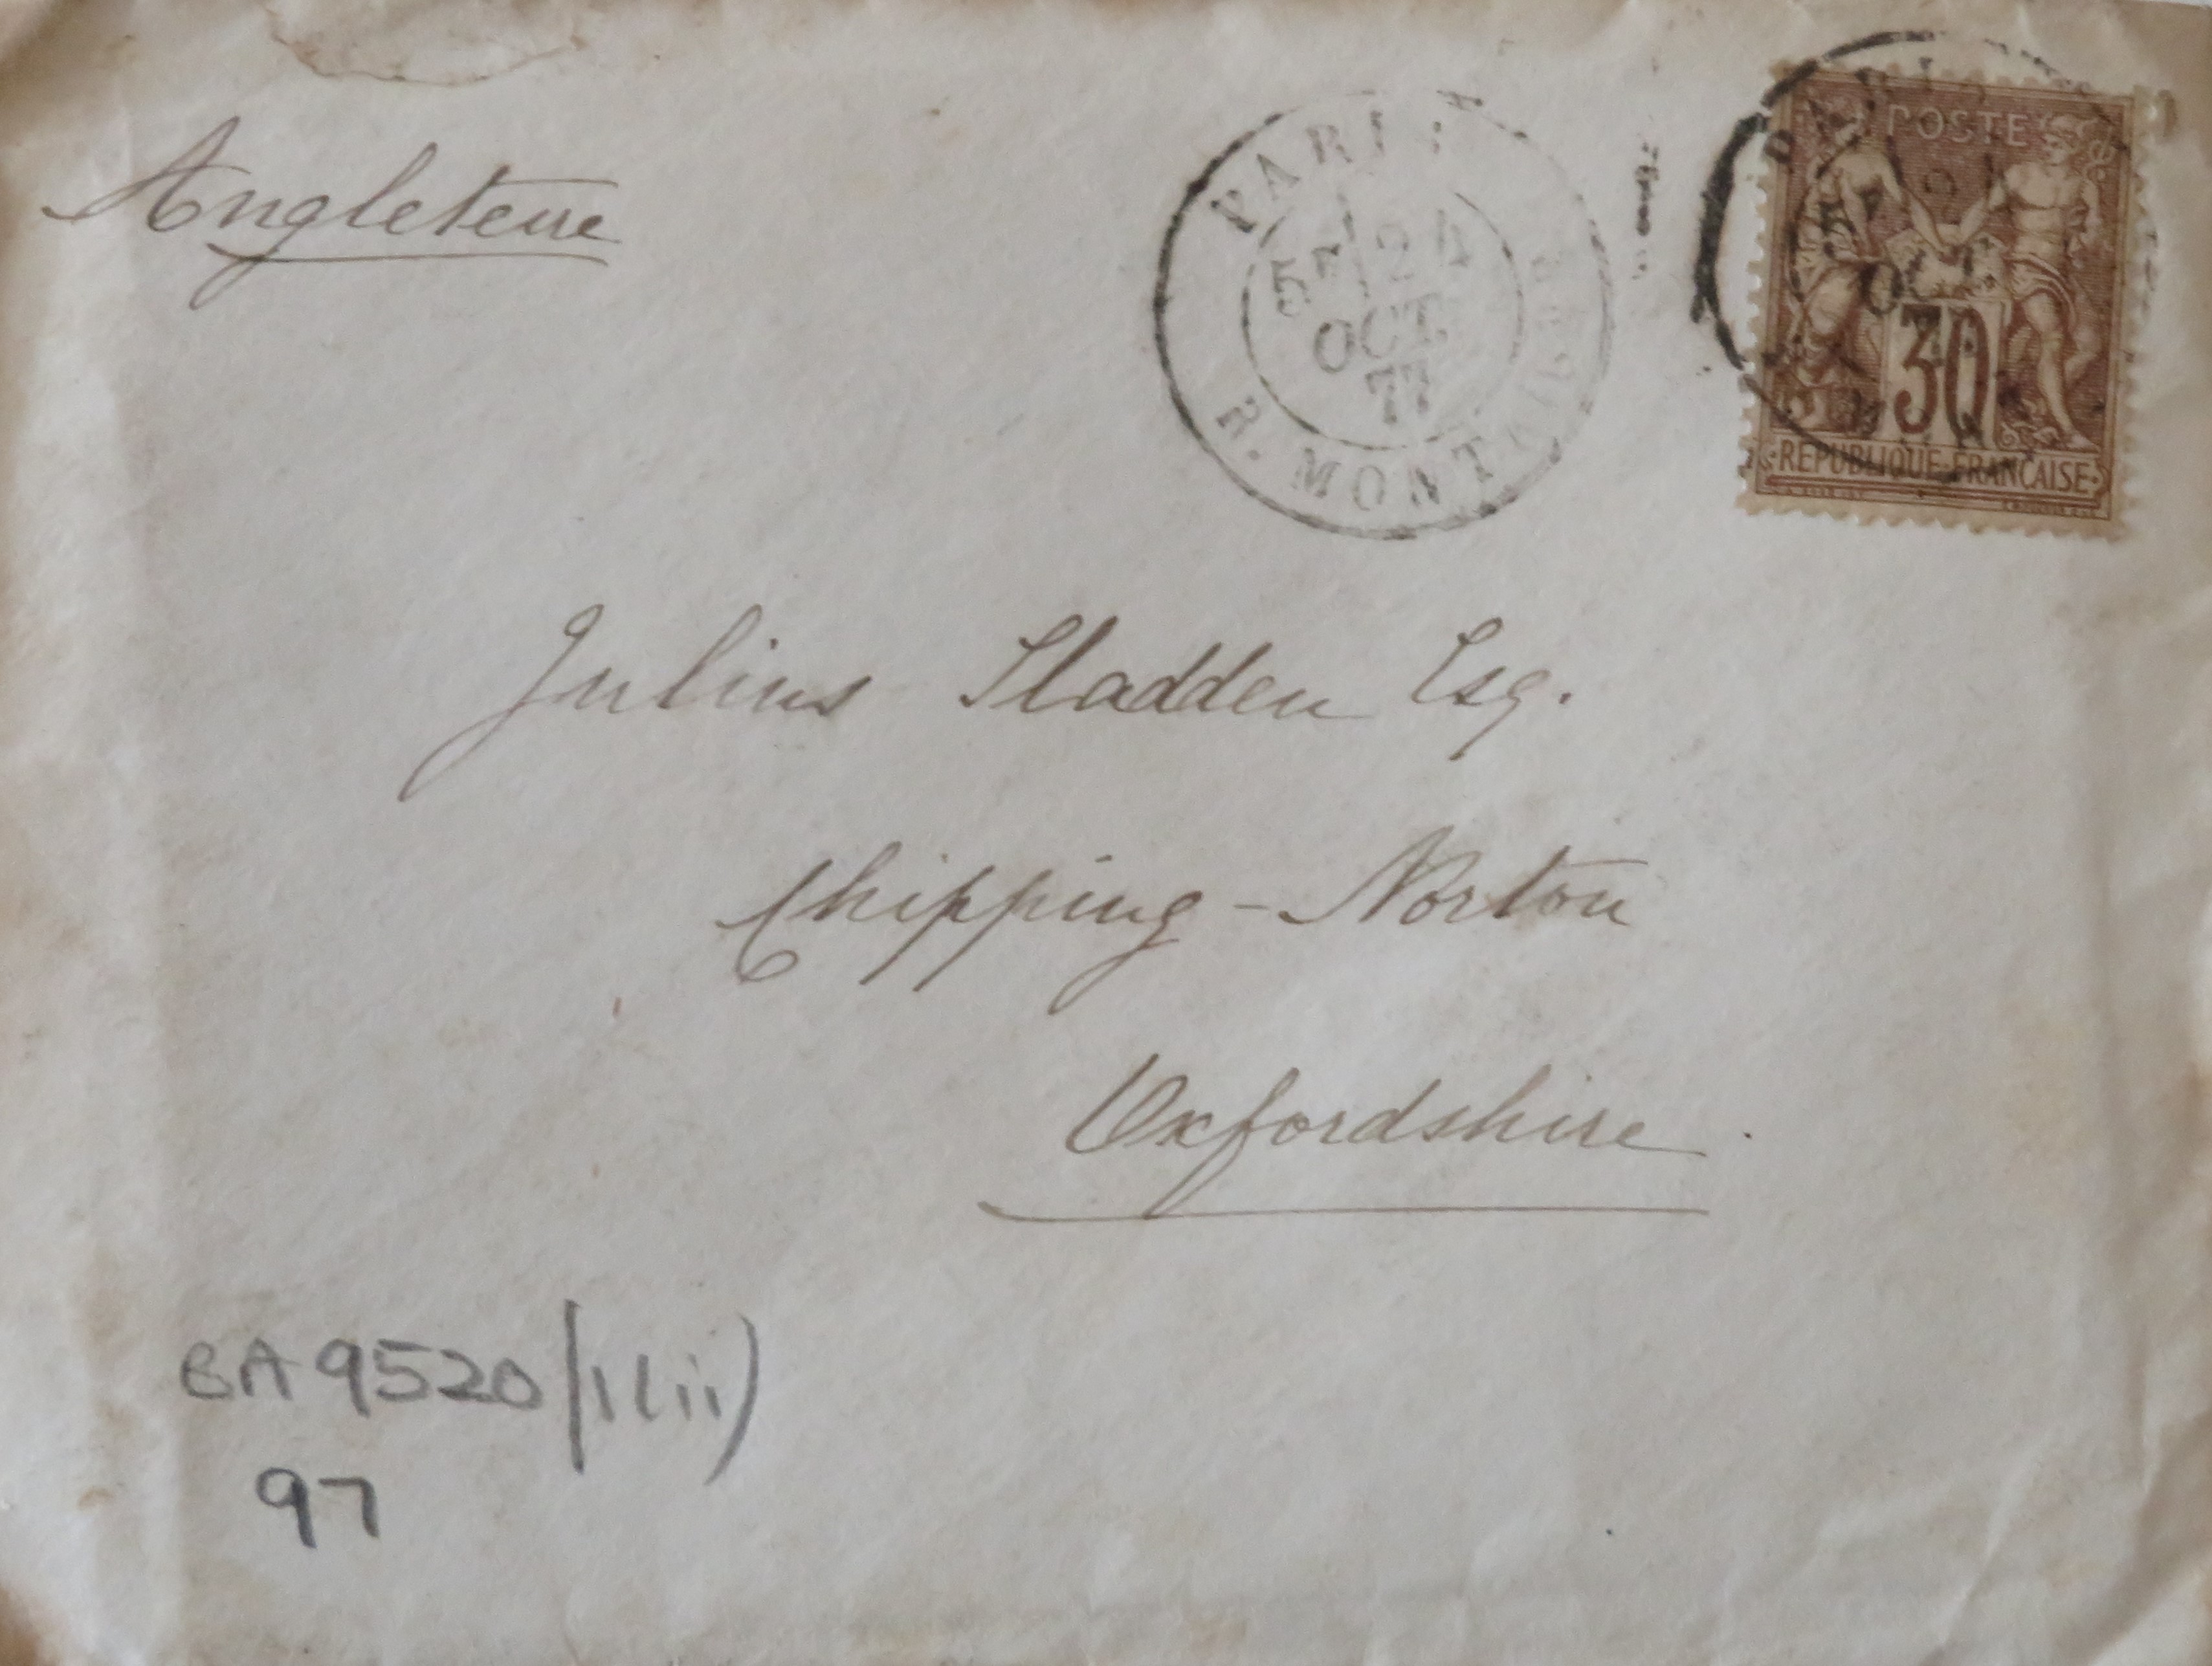 Angleterre
PARIS
OCT.
77
R. MONT
PARIS
POSTE
OCT.
30
REPUBLIQUE FRANCAISE
Julius Sladden Esq.
Chipping - Norton
Oxfordshire.
BA 9520/1(ii)
97